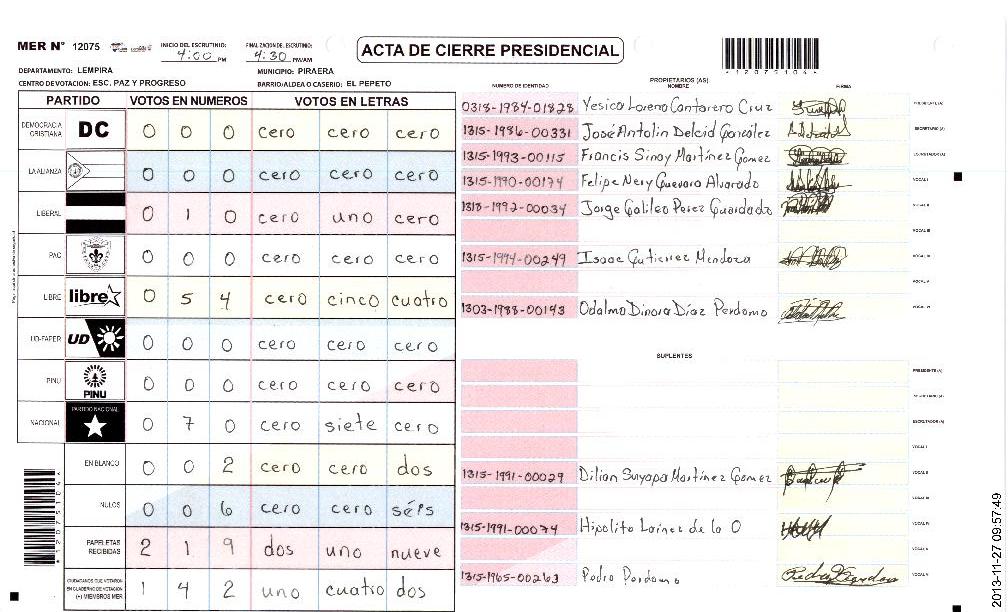 MER N° 12075
INICIO DEL ESCRUTINIO: 4:00 PM
FINALIZACION DEL ESCRUTINIO: 4:30 PM/AM
ACTA DE CIERRE PRESIDENCIAL
DEPARTAMENTO: LEMPIRA
MUNICIPIO: PIRAERA
CENTRO DE VOTACION: ESC. PAZ Y PROGRESO
BARRIO/ALDEA O CASERIO: EL PEPETO
*12075104*
PARTIDO VOTOS EN NUMEROS VOTOS EN LETRAS
DEMOCRACIA CRISTIANA DC 0 0 0 cero cero cero
LA ALIANZA 0 0 0 cero cero cero
LIBERAL 0 1 0 cero uno cero
PAC 0 0 0 cero cero cero
LIBRE libre 0 5 4 cero cinco cuatro
UD-FAPER UD 0 0 0 cero cero cero
PINU PINU 0 0 0 cero cero cero
NACIONAL PARTIDO NACIONAL 0 7 0 cero siete cero
EN BLANCO 0 0 2 cero cero dos
NULOS 0 0 6 cero cero séis
PAPELETAS RECIBIDAS 2 1 9 dos uno nueve
CIUDADANOS QUE VOTARON EN CUADERNO DE VOTACION (+) MIEMBROS MER 1 4 2 uno cuatro dos
*12075104*
PROPIETARIOS (AS).
NUMERO DE IDENTIDAD NOMBRE FIRMA
0318-1984-01828 Yesica Lorena Cantarero Cruz PRESIDENTE (A)
1315-1986-00331 José Antolin Delcid González SECRETARIO (A)
1315-1993-00115 Francis Sinoy Martínez Gomez ESCRUTADOR (A)
1315-1990-00174 Felipe Nery Guevara Alvarado VOCAL I
1313-1992-00034 Jorge Galileo Perez Guardado VOCAL II
VOCAL III
1315-1994-00249 Isaac Gutierrez Mendoza VOCAL IV
VOCAL V
1303-1988-00143 Odalma Dinora Díaz Perdomo VOCAL VI
SUPLENTES
PRESIDENTE (A)
SECRETARIO (A)
ESCRUTADOR (A)
VOCAL I
1315-1991-00029 Dilian Suyapa Martínez Gomez VOCAL II
VOCAL III
1315-1991-00074 Hipolito Lainez de la O VOCAL IV
VOCAL V
1315-1965-00263 Pedro Perdomo VOCAL VI
2013-11-27 09:57:49